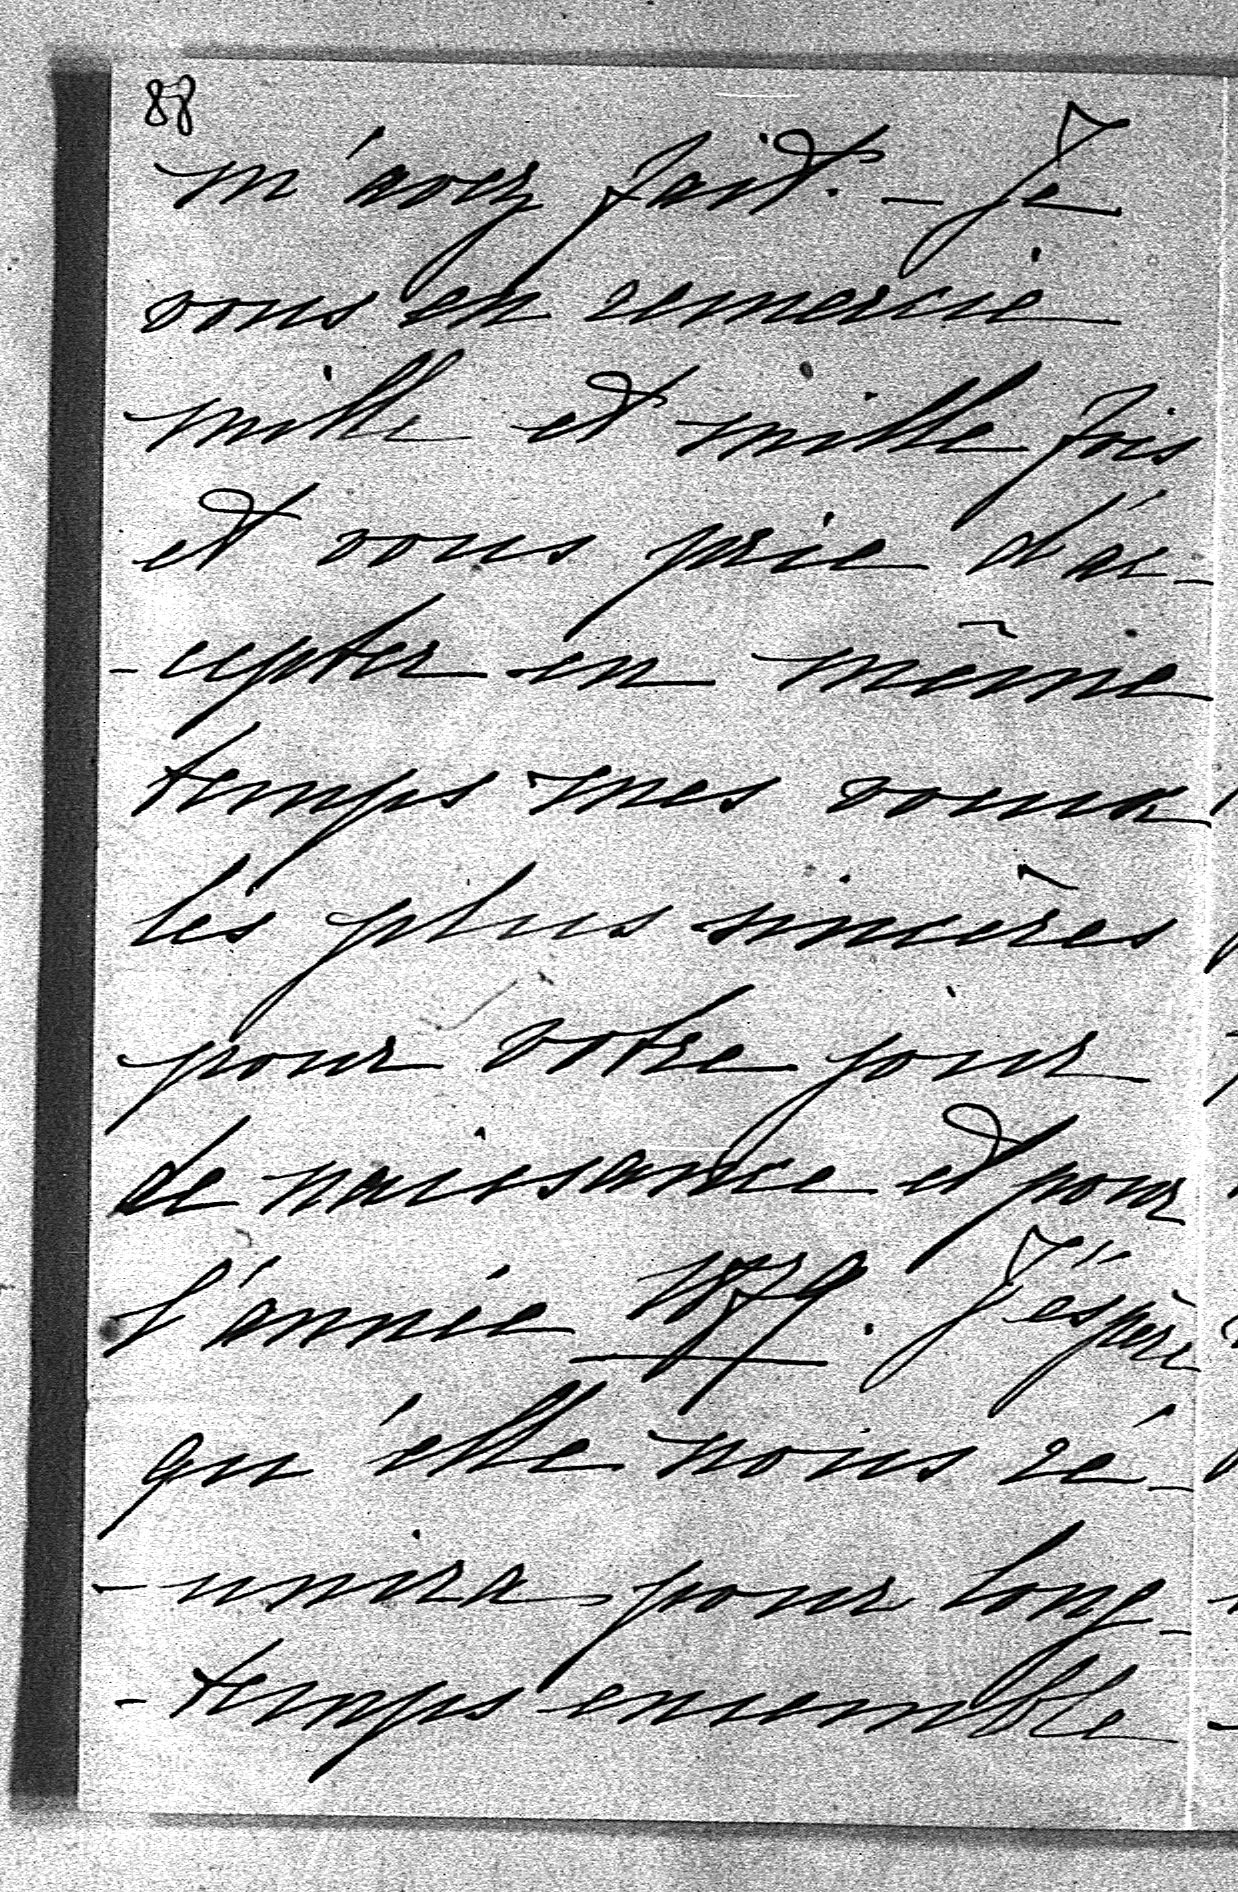 88
m'avez fait. – Je
vous en remercie
mille et mille fois
et vous prie d'ac-
-cepter en même
temps mes voeux
les plus sincères
pour votre jour
de naissance et pour
l'année 1879. J'espère
qu'elle nous ré-
-unira pour long-
-temps ensemble